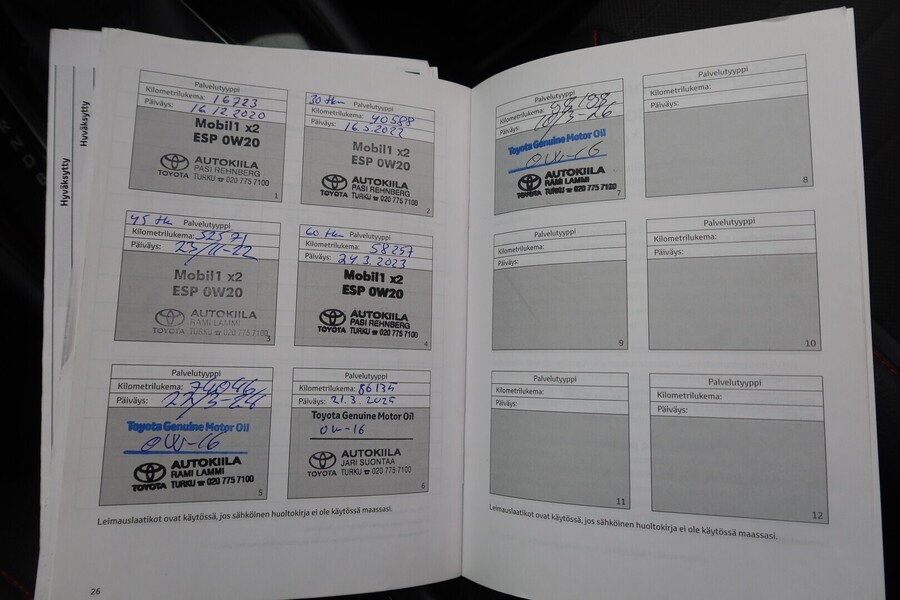 Hyväksytty
Hyväksytty
Palvelutyyppi
Kilometrilukema: 16723
Päiväys: 16.12.2020
Mobil1 x2
ESP 0W20
AUTOKIILA
PASI REHNBERG
TOYOTA TURKU ☎ 020 775 7100
1
30 tkm Palvelutyyppi
Kilometrilukema: 40588
Päiväys: 16.5.2022
Mobil1 x2
ESP 0W20
AUTOKIILA
PASI REHNBERG
TOYOTA TURKU ☎ 020 775 7100
2
45 tkm Palvelutyyppi
Kilometrilukema: 52571
Päiväys:
Mobil1 x2
ESP 0W20
AUTOKIILA
RAMI LAMMI
TOYOTA TURKU ☎ 020 775 7100
3
60 tkm Palvelutyyppi
Kilometrilukema: 58257
Päiväys: 24.3.2023
Mobil1 x2
ESP 0W20
AUTOKIILA
PASI REHNBERG
TOYOTA TURKU ☎ 020 775 7100
4
Palvelutyyppi
Kilometrilukema: 74046
Päiväys:
Toyota Genuine Motor Oil
0W-16
AUTOKIILA
RAMI LAMMI
TOYOTA TURKU ☎ 020 775 7100
5
Palvelutyyppi
Kilometrilukema: 86135
Päiväys: 21.3.2025
Toyota Genuine Motor Oil
0W-16
AUTOKIILA
JARI SUONTAA
TOYOTA TURKU ☎ 020 775 7100
6
Leimauslaatikot ovat käytössä, jos sähköinen huoltokirja ei ole käytössä maassasi.
26
Palvelutyyppi
Kilometrilukema:
Päiväys:
Toyota Genuine Motor Oil
0W-16
AUTOKIILA
RAMI LAMMI
TOYOTA TURKU ☎ 020 775 7100
7
Palvelutyyppi
Kilometrilukema:
Päiväys:
8
Palvelutyyppi
Kilometrilukema:
Päiväys:
9
Palvelutyyppi
Kilometrilukema:
Päiväys:
10
Palvelutyyppi
Kilometrilukema:
Päiväys:
11
Palvelutyyppi
Kilometrilukema:
Päiväys:
12
Leimauslaatikot ovat käytössä, jos sähköinen huoltokirja ei ole käytössä maassasi.